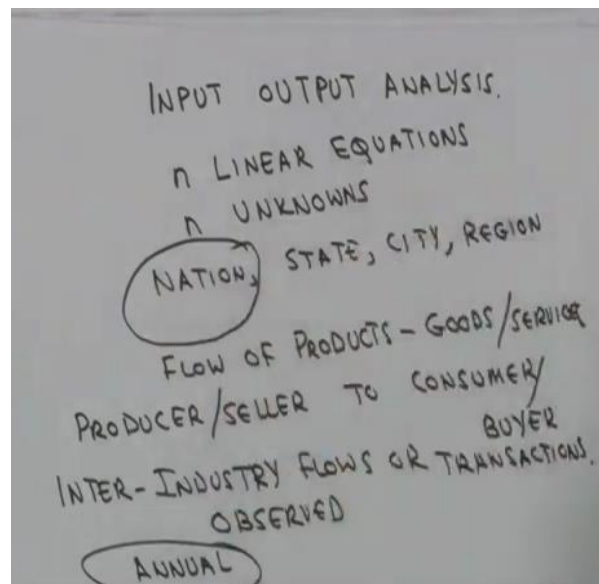 INPUT OUTPUT ANALYSIS.
n LINEAR EQUATIONS
n UNKNOWNS
NATION, STATE, CITY, REGION
FLOW OF PRODUCTS - GOODS/SERVICE
PRODUCER/SELLER TO CONSUMER/
BUYER
INTER-INDUSTRY FLOWS OR TRANSACTIONS.
OBSERVED
ANNUAL